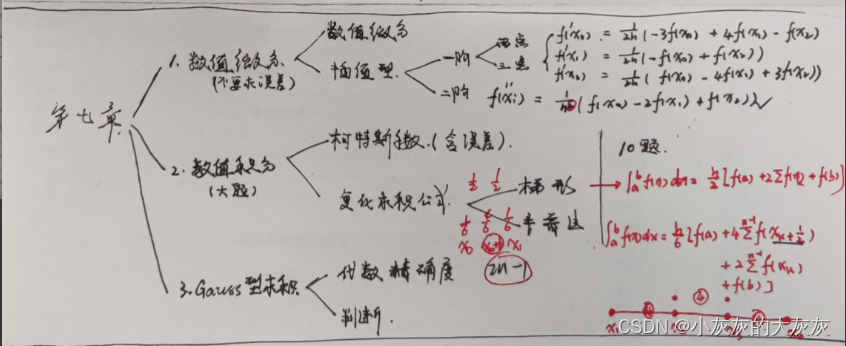 第七章
1. 数值微分
(不要求误差)
数值微分
插值型
一阶
两点
三点
f'(x₀) = 1/2h (-3f(x₀) + 4f(x₁) - f(x₂)
f'(x₁) = 1/2h (-f(x₀) + f(x₂))
f'(x₂) = 1/2h ( f(x₀) - 4f(x₁) + 3f(x₂))
二阶
f''(x₁) = (f(x₀) - 2f(x₁) + f(x₂))
2. 数值积分
(大题)
柯特斯系数.(含误差).
复化求积公式
1/2 1/2
梯形
1/6 4/6 1/6
x₀ x₁
辛普
10题.
∫ₐᵇ f(x)dx = h/2 [f(a) + 2Σf(x) + f(b)]
∫ₐᵇ f(x)dx = h/6 [f(a) + 4Σⁿ⁻¹ f(xₖ+½)
+ 2Σⁿ⁻¹ f(xₖ)
+ f(b)]
3. Gauss型求积
代数精确度
2n-1
判断.
x₁
CSDN @小灰灰的大灰灰